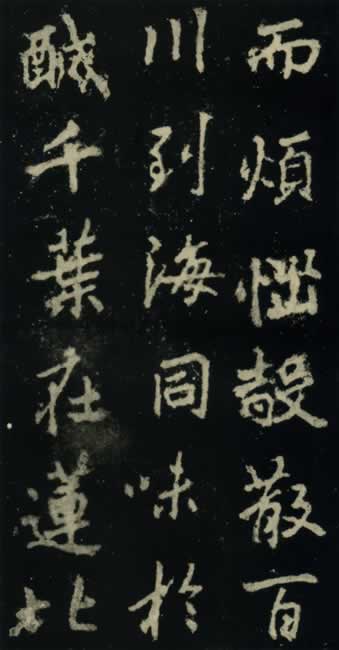 而煩惱殼散百
川到海同味於
醎千葉在蓮比